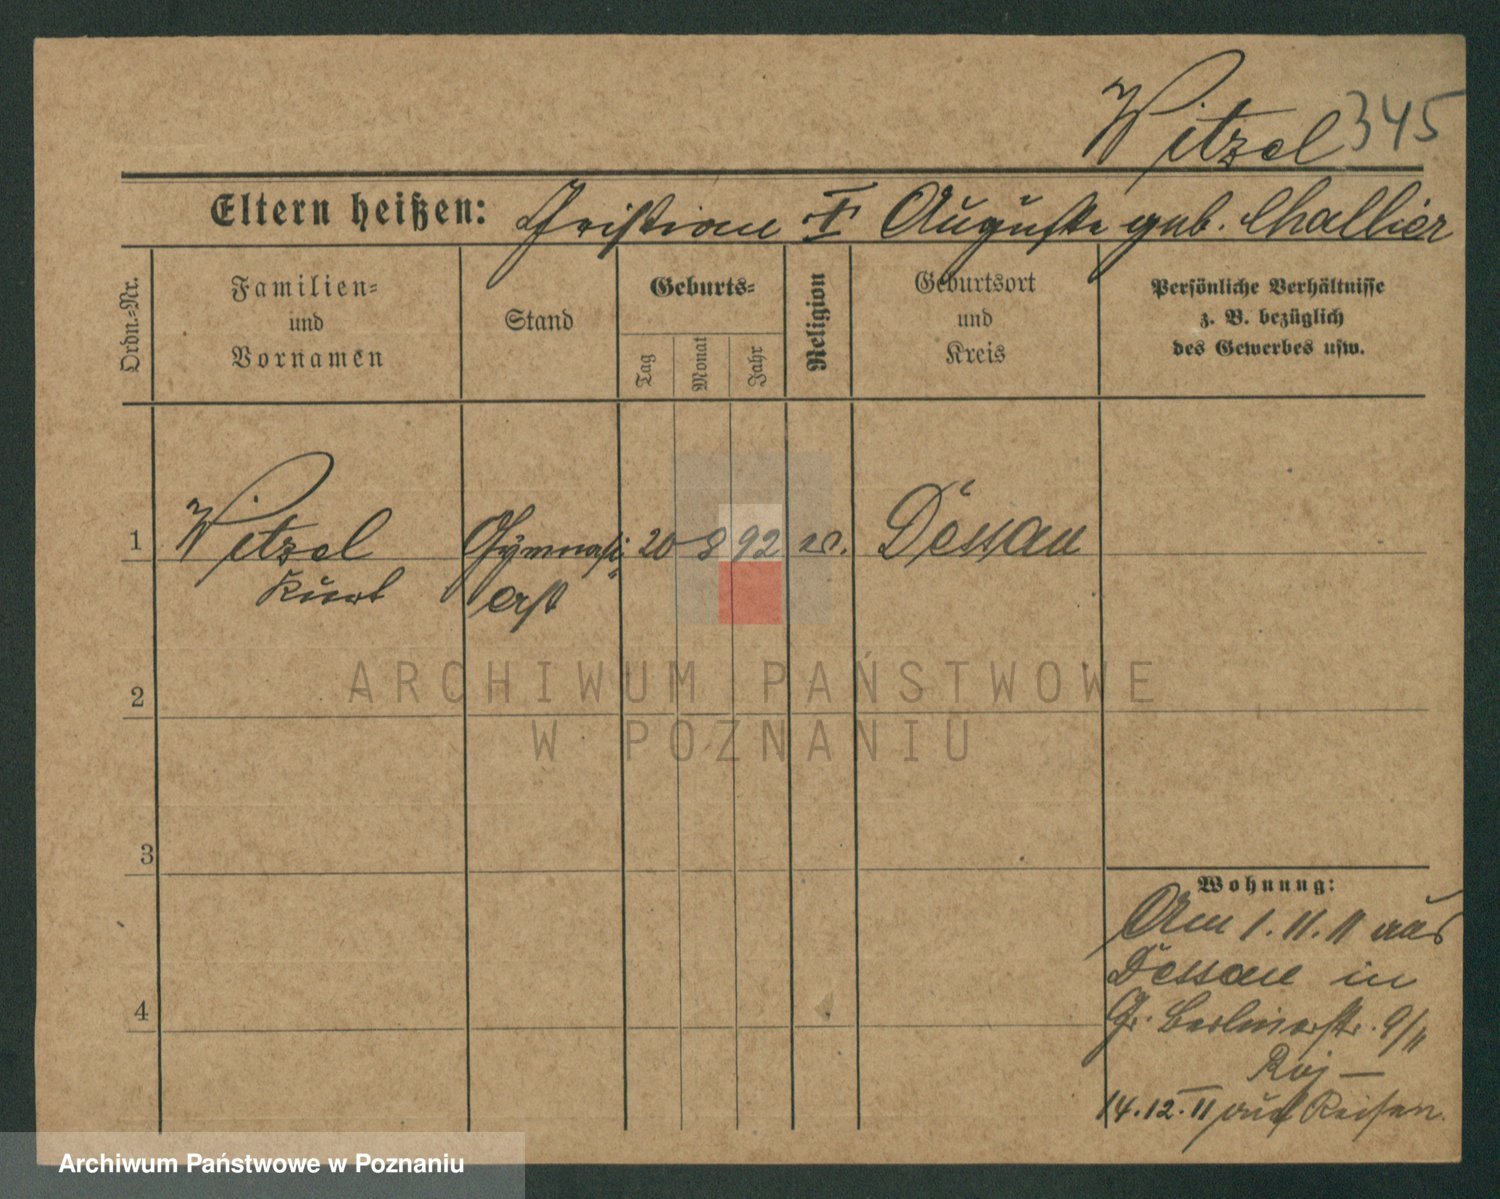 Witzel 345
Eltern heißen: Christian † Auguste geb. Challier
Ordn.-Nr.
Familien-
und
Vornamen
Stand
Geburts-
Tag
Monat
Jahr
Religion
Geburtsort
und
Kreis
Persönliche Verhältnisse
z. B. bezüglich
des Gewerbes usw.
1 Witzel Gymnasi- 20 8 92 ev. Dessau
Kurt erst
2
3
4
Wohnung:
Am 1.11.11 aus
Dessau in
Gr. Berlinerstr. 9/11
14.12.11 auf Reisen.
ARCHIWUM PAŃSTWOWE
W POZNANIU
Archiwum Państwowe w Poznaniu